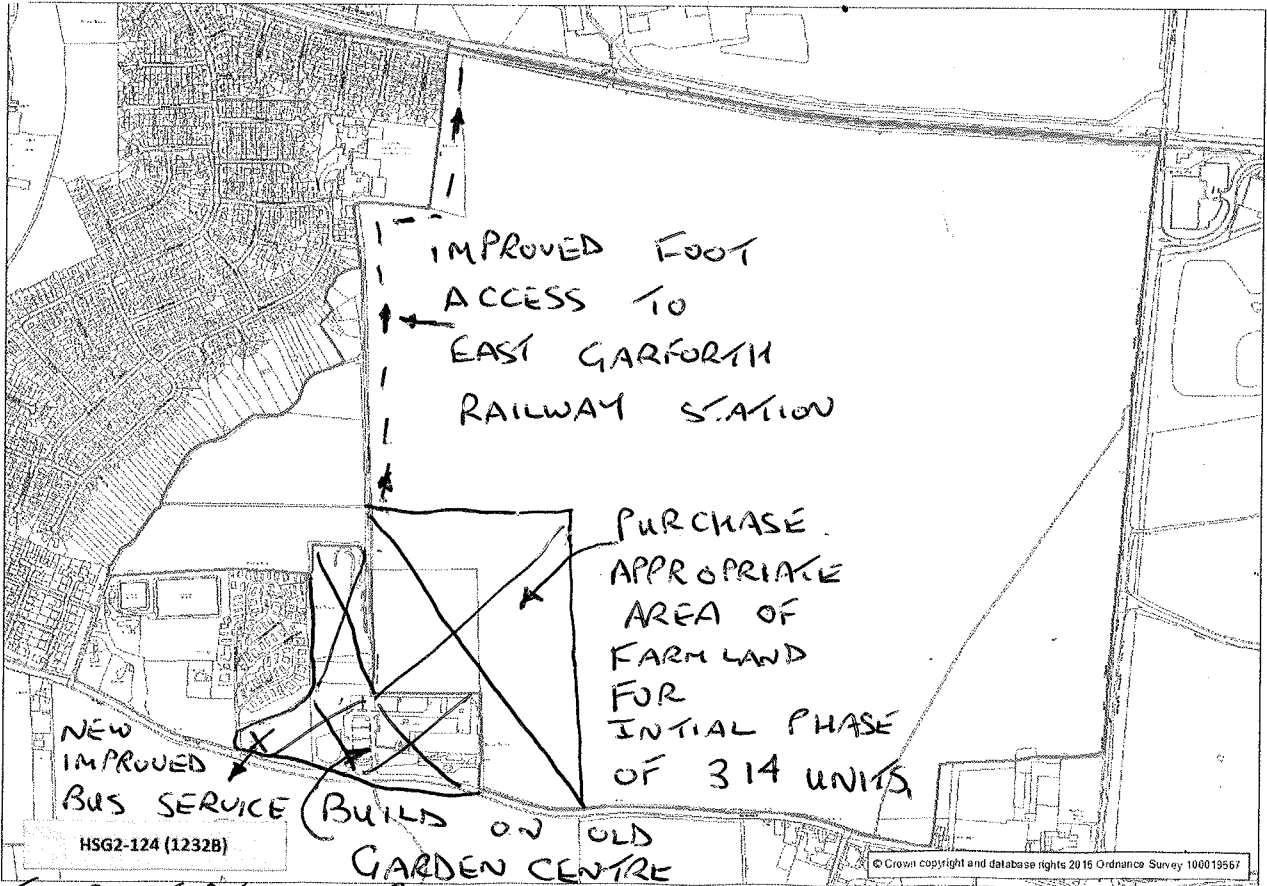 IMPROVED FOOT
ACCESS TO
EAST GARFORTH
RAILWAY STATION
PURCHASE
APPROPRIATE
AREA OF
FARM LAND
FOR
INTIAL PHASE
OF 314 UNITS,
NEW
IMPROVED
BUS SERVICE
BUILD ON OLD
GARDEN CENTRE
HSG2-124 (1232B)
© Crown copyright and database rights 2015 Ordnance Survey 100019567